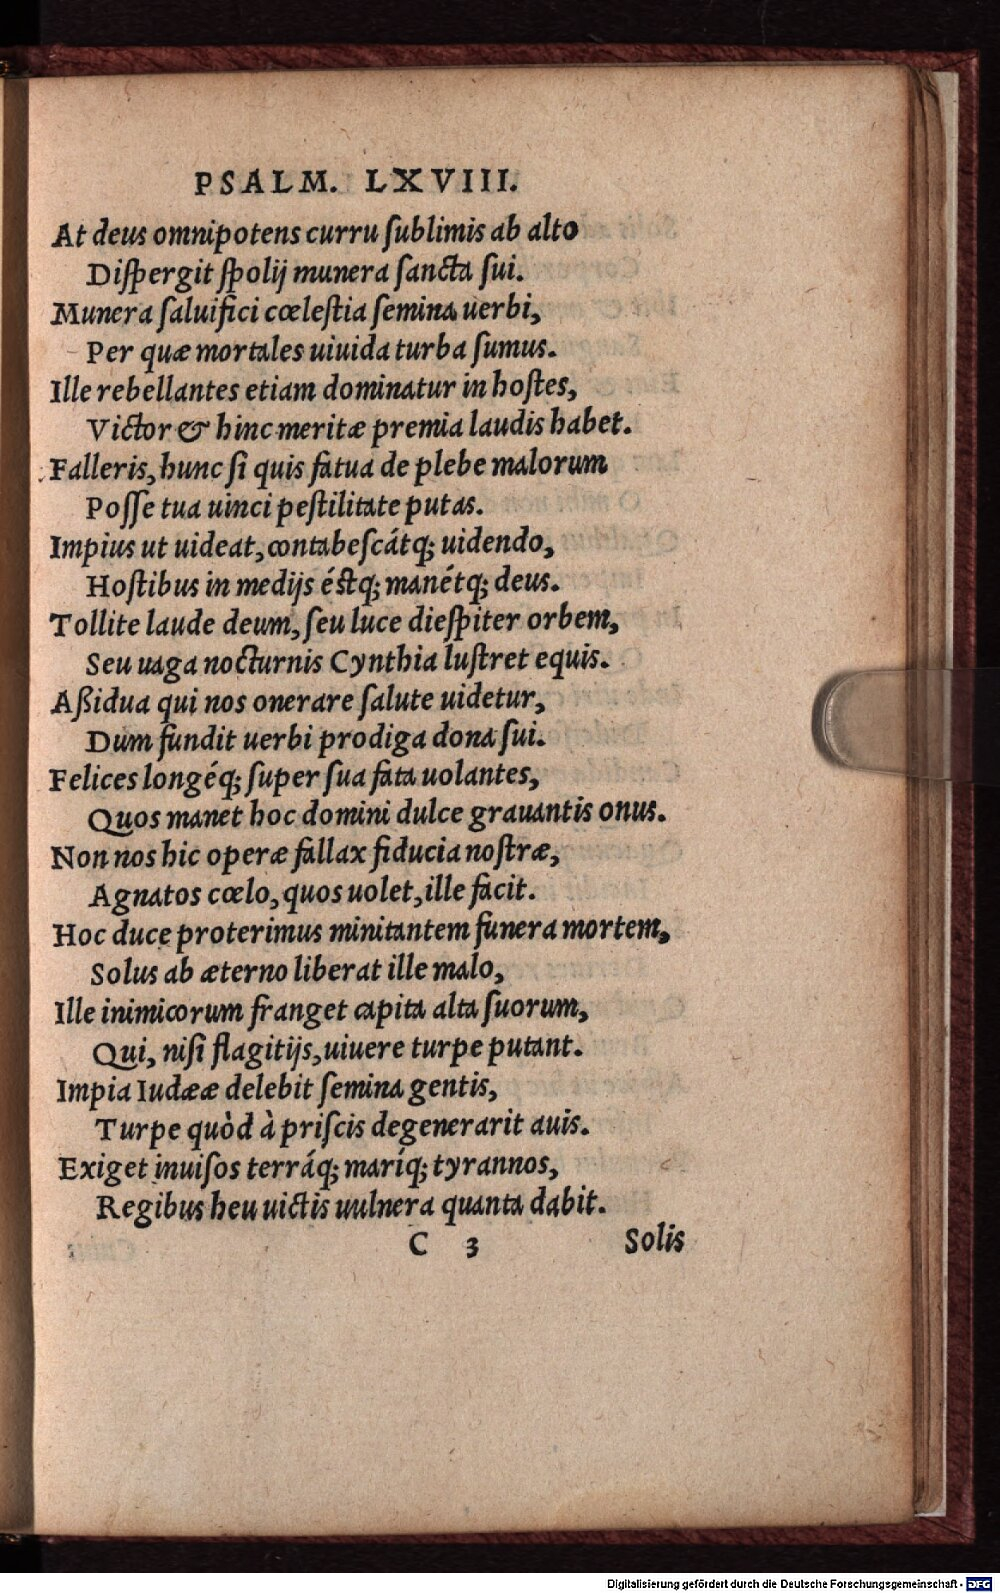 PSALM. LXVIII.
At deus omnipotens curru ſublimis ab alto
Diſpergit ſpolij munera ſancta ſui.
Munera ſaluifici cœleſtia ſemina uerbi,
Per quæ mortales uiuida turba ſumus.
Ille rebellantes etiam dominatur in hoſtes,
Victor & hinc meritæ premia laudis habet.
Falleris, hunc ſi quis fatua de plebe malorum
Poſſe tua uinci peſtilitate putas.
Impius ut uideat, contabeſcátq; uidendo,
Hoſtibus in medijs éſtq; manétq; deus.
Tollite laude deum, ſeu luce dieſpiter orbem,
Seu uaga nocturnis Cynthia luſtret equis.
Aßidua qui nos onerare ſalute uidetur,
Dum fundit uerbi prodiga dona ſui.
Felices longéq; ſuper ſua fata uolantes,
Quos manet hoc domini dulce grauantis onus.
Non nos hic operæ fallax fiducia noſtræ,
Agnatos cœlo, quos uolet, ille facit.
Hoc duce proterimus minitantem funera mortem,
Solus ab æterno liberat ille malo,
Ille inimicorum franget capita alta ſuorum,
Qui, niſi flagitijs, uiuere turpe putant.
Impia Iudææ delebit ſemina gentis,
Turpe quòd à priſcis degenerarit auis.
Exiget inuiſos terráq; maríq; tyrannos,
Regibus heu uictis uulnera quanta dabit.
C 3 Solis
Digitalisierung gefördert durch die Deutsche Forschungsgemeinschaft - DFG